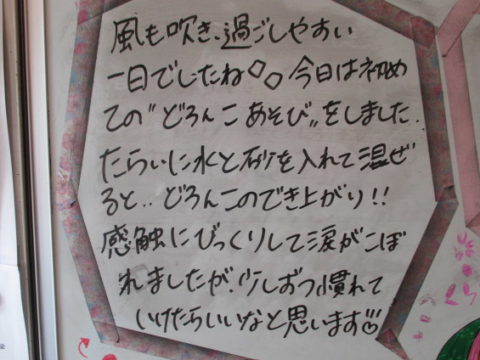 風も吹き、過ごしやすい
一日でしたね◇◇今日は初め
ての"どろんこあそび"をしました.
たらいに水と砂を入れて混ぜ
ると‥どろんこのでき上がり!!
感触にびっくりして涙がこぼ
れましたが、少しずつ慣れて
いけたらいいなと思います♡